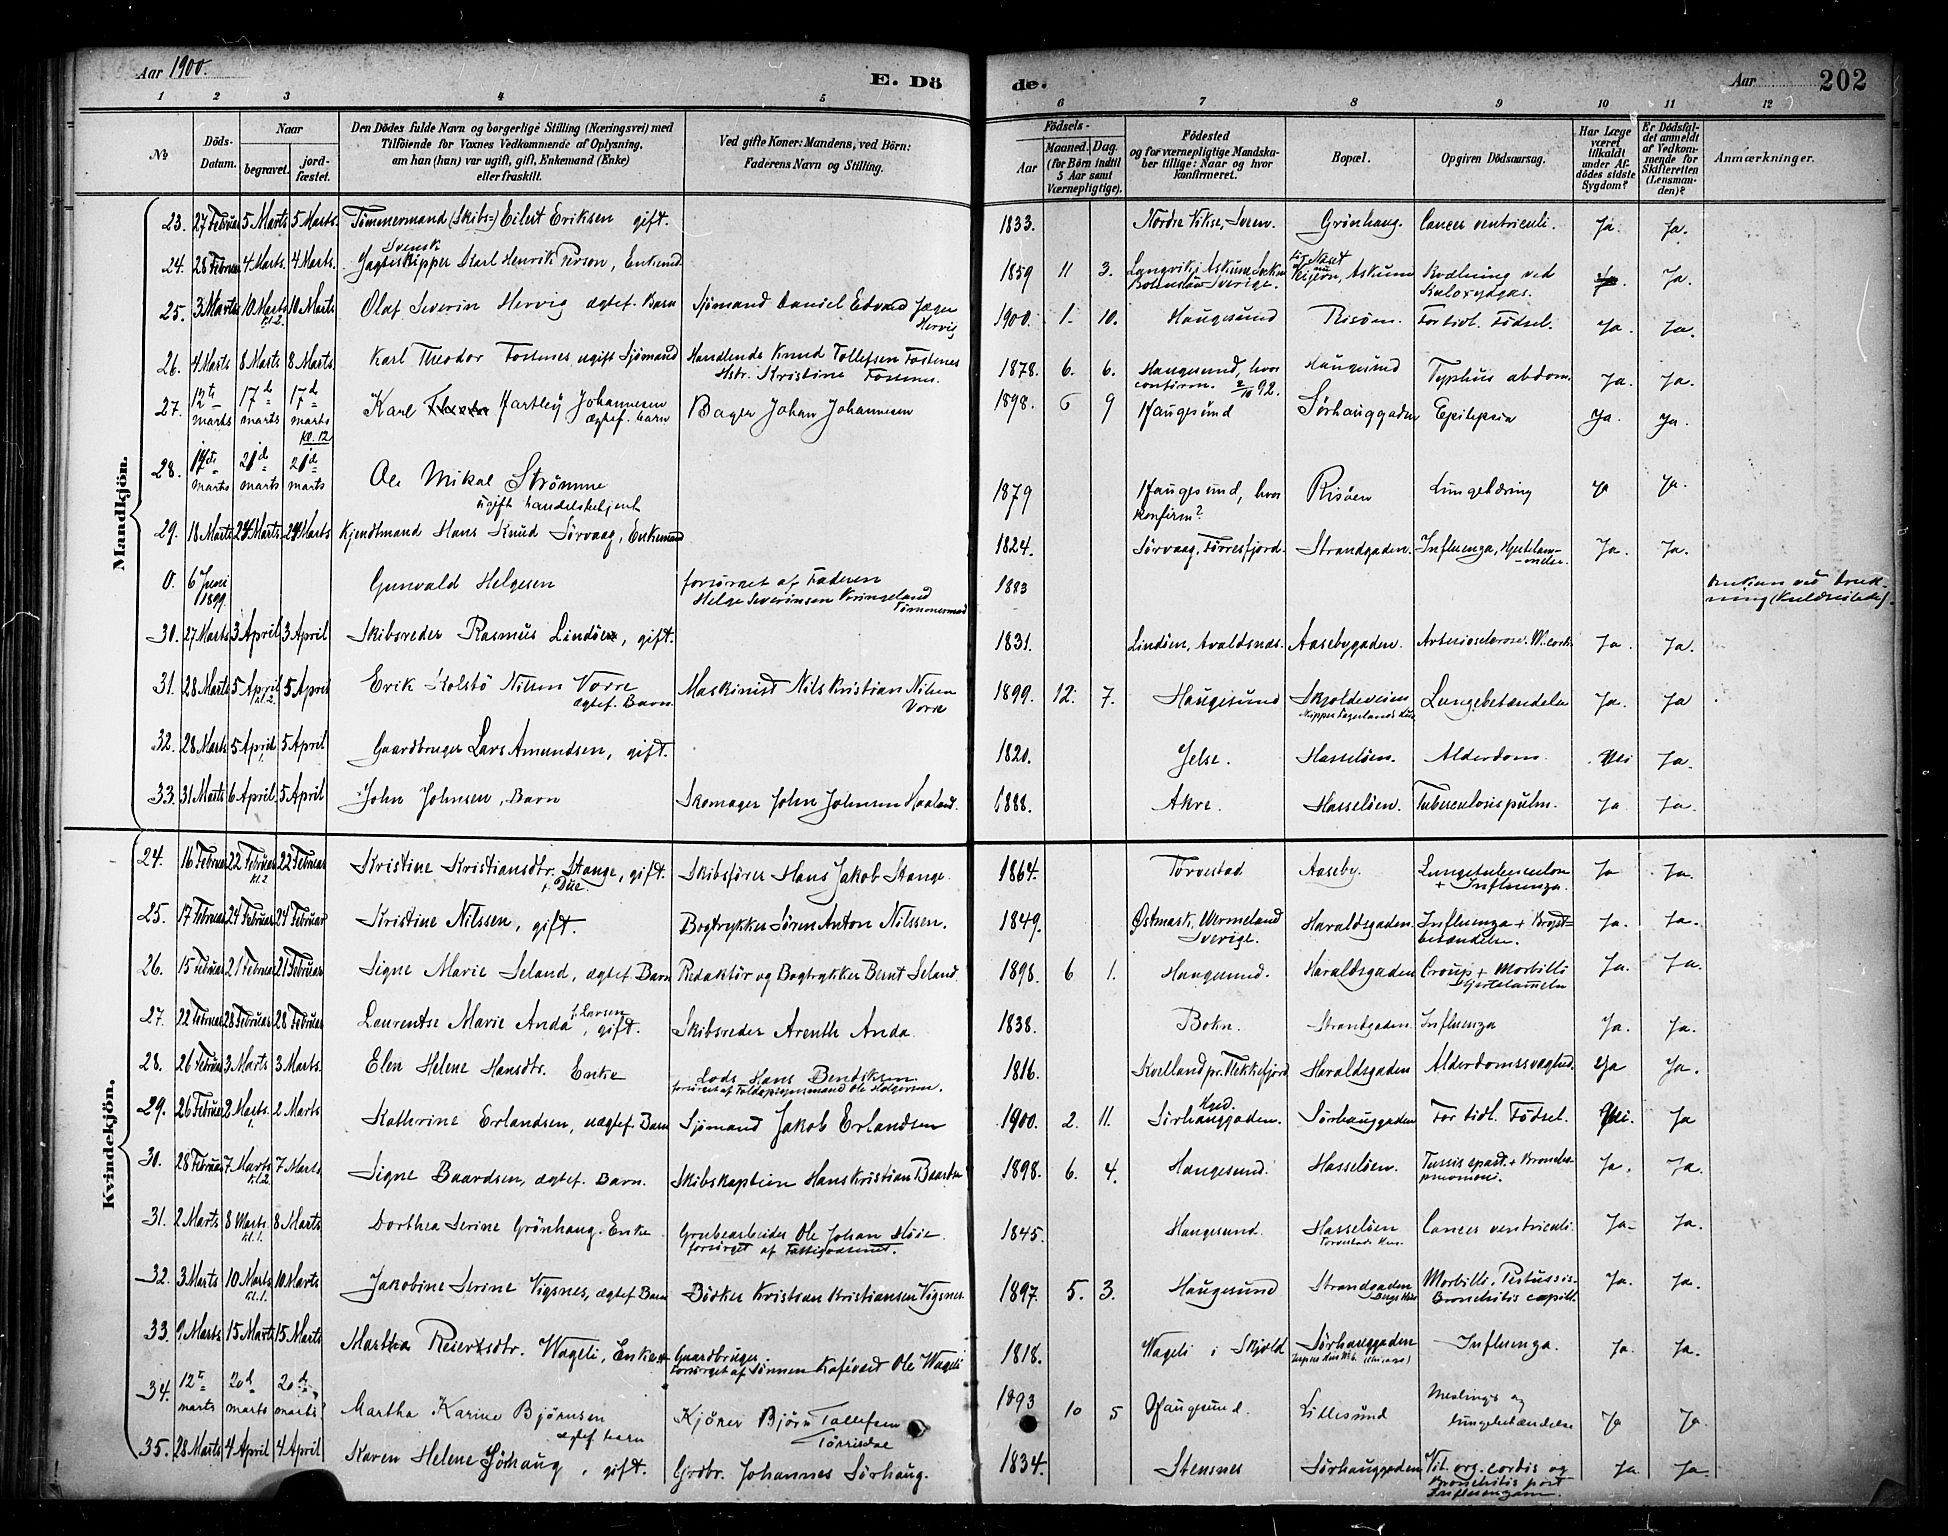 Aar 1900. E. Dö de. Aar 202
1 2 3 4 5 6 7 8 9 10 11 12
№ Döds-Datum. Naar begravet. jordfæstet. Den Dödes fulde Navn og borgerlige Stilling (Næringsvei) med Tilföiende for Voxnes Vedkommende af Oplysning, om han (hun) var ugift, gift, Enkemand (Enke) eller fraskilt. Ved gifte Koner: Mandens, ved Börn: Faderens Navn og Stilling. Födsels- Aar Maaned. Dag. (for Börn indtil 5 Aar samt Værnepligtige). Födested og for værnepligtige Mandskaber tillige: Naar og hvor konfirmeret. Bopæl. Opgiven Dödsaarsag. Har Læge været tilkaldt under Afdödes sidste Sygdom? Er Dödsfaldet anmeldt af Vedkommende for Skifteretten (Lensmanden)? Anmærkninger.
Mandkjön.
23. 27 Februar 5 Marts 5 Marts. Tömmermand (Skibs-) Eilert Eriksen gift. 1833. Nordre Vikse, Sveen. Grönhaug. Cancer ventriculi. Ja. Ja.
24. 28 Februar 4 Marts. 4 Marts. Svensk Jagteskipper Karl Henrik Person, Enkemd 1859 11 3. Askum Sverige. Askum Kvælning ved Kuloxydgas. Ja.
25. 3 Marts 10 Marts kl. 2. 10 Marts Olaf Severin Hervig ægtef. Barn Sjömand Daniel Edvard Jæger Hervig 1900. 1. 10. Haugesund Risöen. For tidl. Födsel. Ja. Ja.
26. 4 Marts 8 Marts 8 Marts. Karl Theodor Fosenes ugift Sjömand Handlende Knud Tollefsen Fosenes Hstr. Kristine Fosenes. 1878. 6. 6. Haugesund, hvor confirm. 2/10 92. Haugesund Typhus abdom. Ja. Ja.
27. 12te marts 17d marts 17d marts kl. 12 Karl Hartley Johannesen ægtef. barn Bager Johan Johannesen 1898. 6 9 Haugesund Sörhauggaden Epilepsia Ja. Ja.
28. 14de marts 21d marts 21d marts Ole Mikal Strömme ugift handelsbetjent 1879 Haugesund, hvor konfirm? Risöen Lungetæring Ja Ja.
29. 18 Marts 24 Marts 24 Marts. Kjendtmand Hans Knud Sörvaag, Enkemand 1824. Sörvaag, Förresfjord. Strandgaden. Influenza, Hjertelammelse. Ja. Ja.
0. 6 Juni 1899. Gunvald Helgesen forsörget af Faderen Helge Severinsen Kringeland Tömmermand 1883 ved Drukning
30. 27 Marts 3 April 3 April Skibsreder Rasmus Lindöen, gift. 1831. Lindöen, Avaldsnes. Aasebygaden. Arteriosclerose. Ja. Ja.
31. 28 Marts 5 April kl. 2. 5 April Erik Kolstö Nilsen Vorre ægtef. Barn Maskinist Nils Kristian Nilsen Vorre 1899. 12. 7. Haugesund Skjoldeveien Skipper Fagerlands Hus Lungebetændelse Ja. Ja
32. 28 Marts 5 April 5 April Gaardbruger Lars Amundsen, gift. 1820. Jelse. Hasselöen. Alderdom. Nei Ja.
33. 31 Marts 6 April 5 April John Johnsen, Barn Skomager John Johnsen Haaland. 1888. Akre. Hasselöen. Tuberculosis pulm. Ja Ja.
Kvindekjön.
24. 16 Februar 22 Februar kl. 2 22 Februar Kristine Kristiansdtr. Stange, gift. f. Due Skibsförer Hans Jakob Stange. 1864. Torvestad Aaseby. Lungetuberculose + Influenza. Ja Ja.
25. 17 Februar 24 Februar 24 Februar Kristine Nilssen, gift. Bogtrykker Sören Anton Nilssen. 1849. Östmark, Wermeland Sverige. Haraldsgaden. Influenza + Brystbetændelse. Ja. Ja.
26. 15 Februar 21 Februar 21 Februar Signe Marie Seland, ægtef. Barn Redaktör og Bogtrykker Bernt Seland 1898. 6 1. Haugesund. Haraldsgaden Croup + Morbilli Hjertelammelse Ja. Ja.
27. 22 Februar 28 Februar 28 Februar Laurentse Marie Anda f. Larsen, gift. Skibsreder Arenth Anda. 1838. Bokn. Strandgaden. Influenza Ja. Ja.
28. 26 Februar 3 Marts 3 Marts. Elen Helene Hansdtr. Enke Lods Hans Bendiksen. forsörget af Toldopsynsmand Ole Holgersen. 1816. Kvelland pr. Flekkefjord Haraldsgaden Alderdomssvaghed. Ja Ja.
29. 26 Februar 2 Marts. 2 Marts Kathrine Erlandsen, uægtef. Barn Sjömand Jakob Erlandsen 1900. 2. 11. Hgsd. Sörhauggaden. Sörhauggaden For tidl. Födsel. Nei. Ja
30. 28 Februar 7 Marts kl. 2 7 Marts Signe Baardsen, ægtef. Barn. Skibskaptein Hans Kristian Baardsen 1898. 6. 4. Haugesund. Hasselöen. Tussis spast. + Bronchopneumoni. Ja. Ja.
31. 2 Marts 8 Marts. kl. 1. 8 Marts Dorthea Serine Grönhaug. Enke Grubearbeider Ole Johan Höie. forsörget af Fattigvæsenet. 1845. Haugesund. Hasselöen Torvestads Hus. Cancer ventriculi. Ja. Ja.
32. 3 Marts 10 Marts kl. 1. 10 Marts Jakobine Serine Vigsnes, ægtef Barn Bödker Kristian Kristiansen Vigsnes. 1897. 5. 3. Haugesund Strandgaden Morbilli, Pertussis. Bronchitis capill. Ja. Ja.
33. 9 Marts 15 Marts 15 Marts Martha Reiersdtr. Wageli, Enke Gaardbruger Forsörget af Sönnen Ole Wageli 1818. Wageli i Skjold Sörhauggaden Influenza. Ja. Ja.
34. 12te marts 20d marts 20d marts. Martha Karine Björnsen ægtef barn Kjörer Björn Tollefsen Törrisdae 1893 10 5 Haugesund. Lillesund Meslinge og lungebetændelse Ja Ja.
35. 28 Marts 4 April 4 April Karen Helene Sörhaug, gift. Grdbr. Johannes Sörhaug. 1834. Stensnes Sörhauggaden Vit. org. cordis og Bronchitis post Influenzam. Ja Ja.